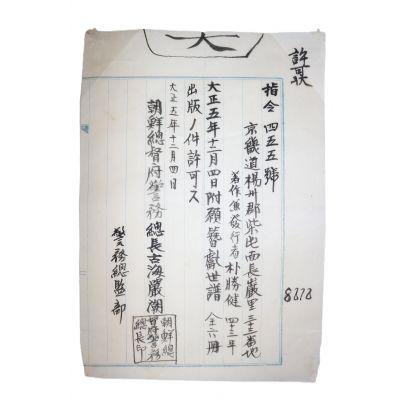 許可狀
指令四五五號
京畿道楊州郡柴屯面長巖里三十三番地
著作兼發行者 朴勝健 四十三年
大正五年十二月四日附願簪獻世譜 全六冊
出版ノ件許可ス
大正五年十二月四日
朝鮮總督府警務總長古海嚴潮
朝鮮總督府警務總長印
警務總監部